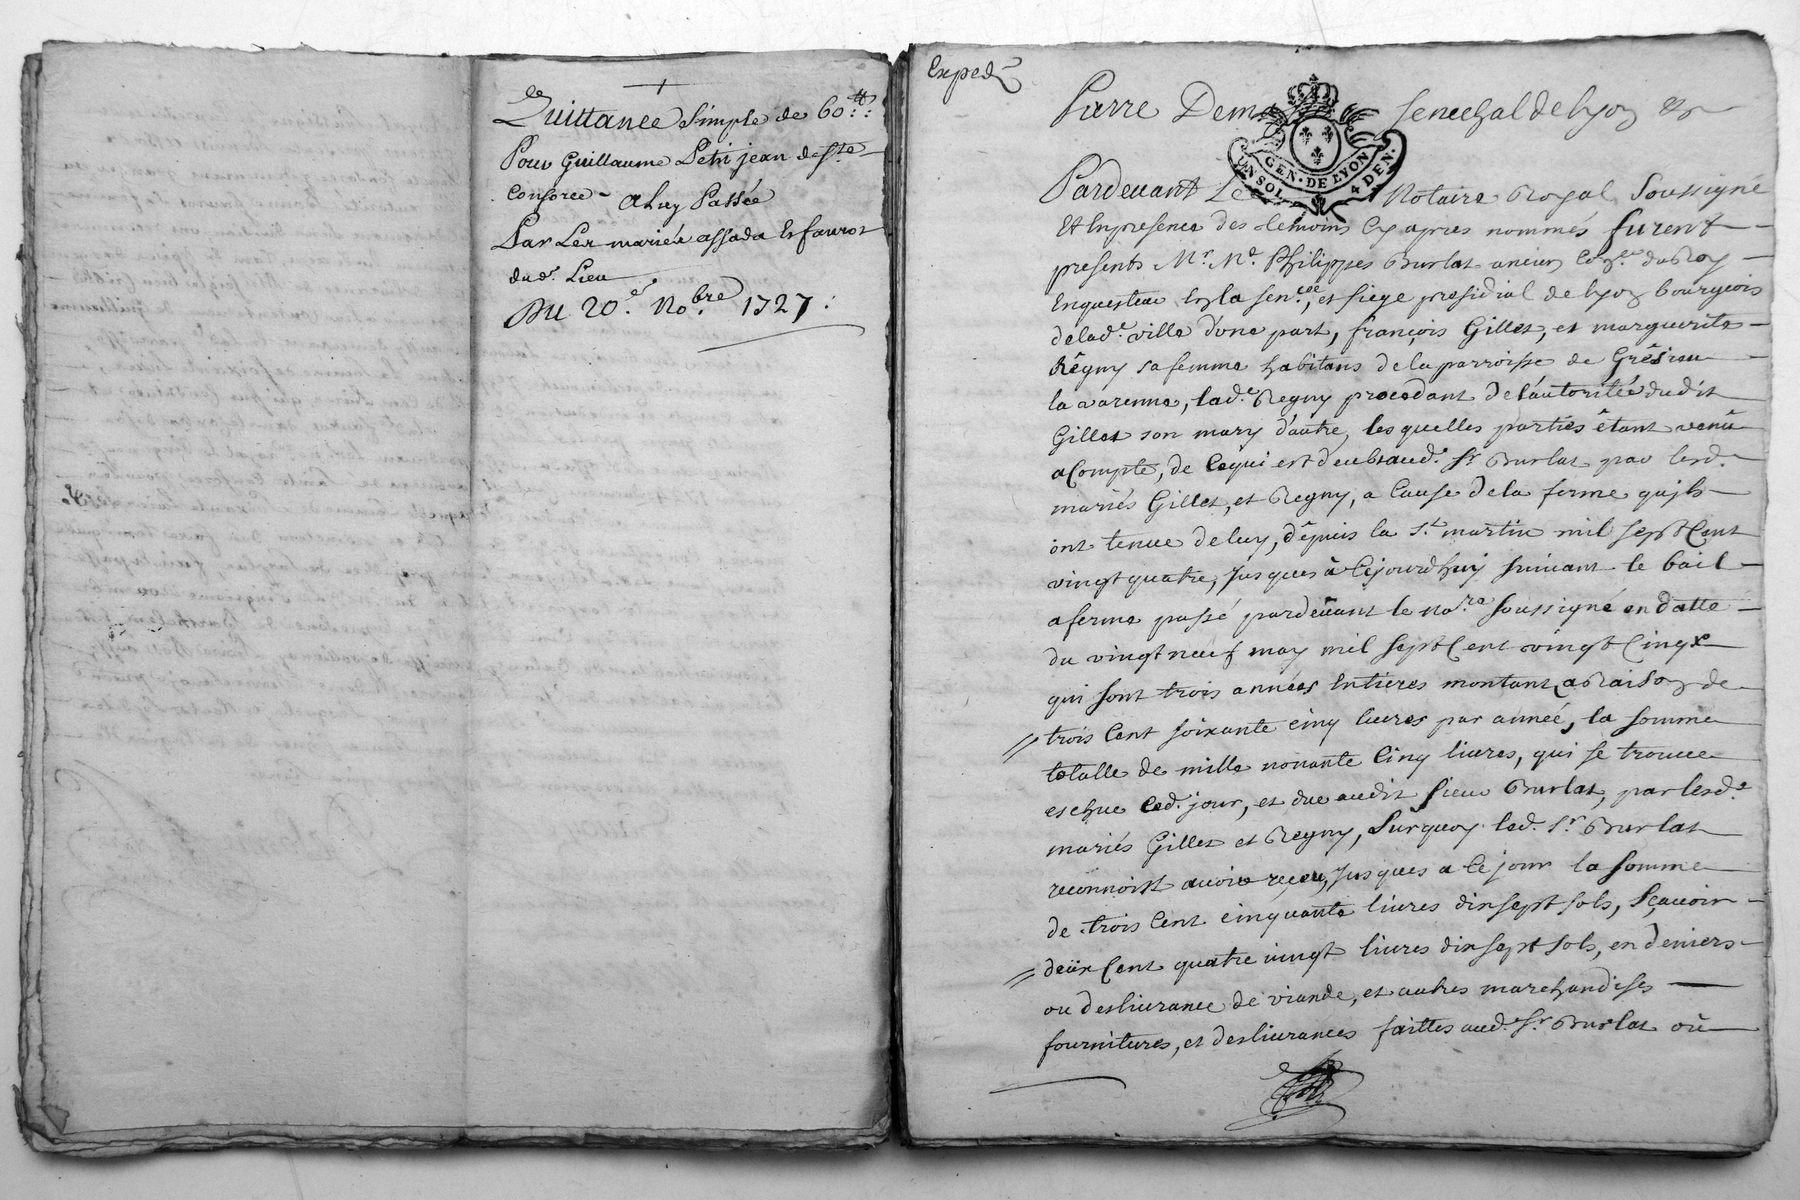 Quittance simple de 60 ₶:
Pour Guillaume Petit jean de Ste
Consorce a luy Passée
Par Les mariés assada Et fauros
dud. Lieu
Du 20e. Nobre. 1727:
Exped
Pierre Senechal de lyon &
GEN. DE LYON
UN SOL 4 DEN.
Pardevant Le Notaire Royal Soussigné
Et En presence des temoins Cy apres nommés furent
presents Mr. Me. Philippes Burlat ancien Coner. du Roy
Enquesteur En la sen.cée, et siege presidial de lyon bourgeois
de lad. ville d'une part, françois Gillet, et marguerite
Régny sa femme habitans de la parroisse de Grésieu
la varenne, lad.e Regny procedant de l'autorité dudit
Gillet son mary d'autre, les quelles partiés êtant venû
a Compte, de Ce qui est deub aud. Sr. Burlat par lesd.
mariés Gillet, et Regny, a Cause de la ferme qu'ils
ont tenue de luy, dêpuis la St. martin mil sept Cent
vingt quatre, Jusques à Cejourd'huy suivant le bail
a ferme passé pardevant le No.re soussigné en datte
du vingt neuf may mil sept Cent vingt Cinq
qui sont trois années Entieres montant a Raison de
trois Cent soixante cinq livres par année, la somme
totalle de mille nonante Cinq livres, qui se trouve
eschue Ced. jour, et due audit sieur Burlat, par lesd.
mariés Gillet et Regny, Surquoy led. Sr. Burlat
reconnoist avoir reçeu, Jusques a Ce jour la somme
de trois Cent cinquante livres dixsept sols, Sçavoir
deüx Cent quatre vingt livres dix sept sols, en deniers
ou deslivrance de viande, et autres marchandises
fournitures, et deslivrances faittes aud. Sr. Burlat où